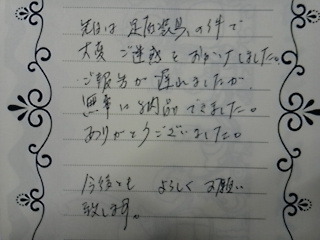 先日は 足底装具の件で
大変 ご迷惑を おかけしました。
ご報告が 遅れましたが
無事に 納品できました。
ありがとうございました。
今後とも よろしく お願い
致します。